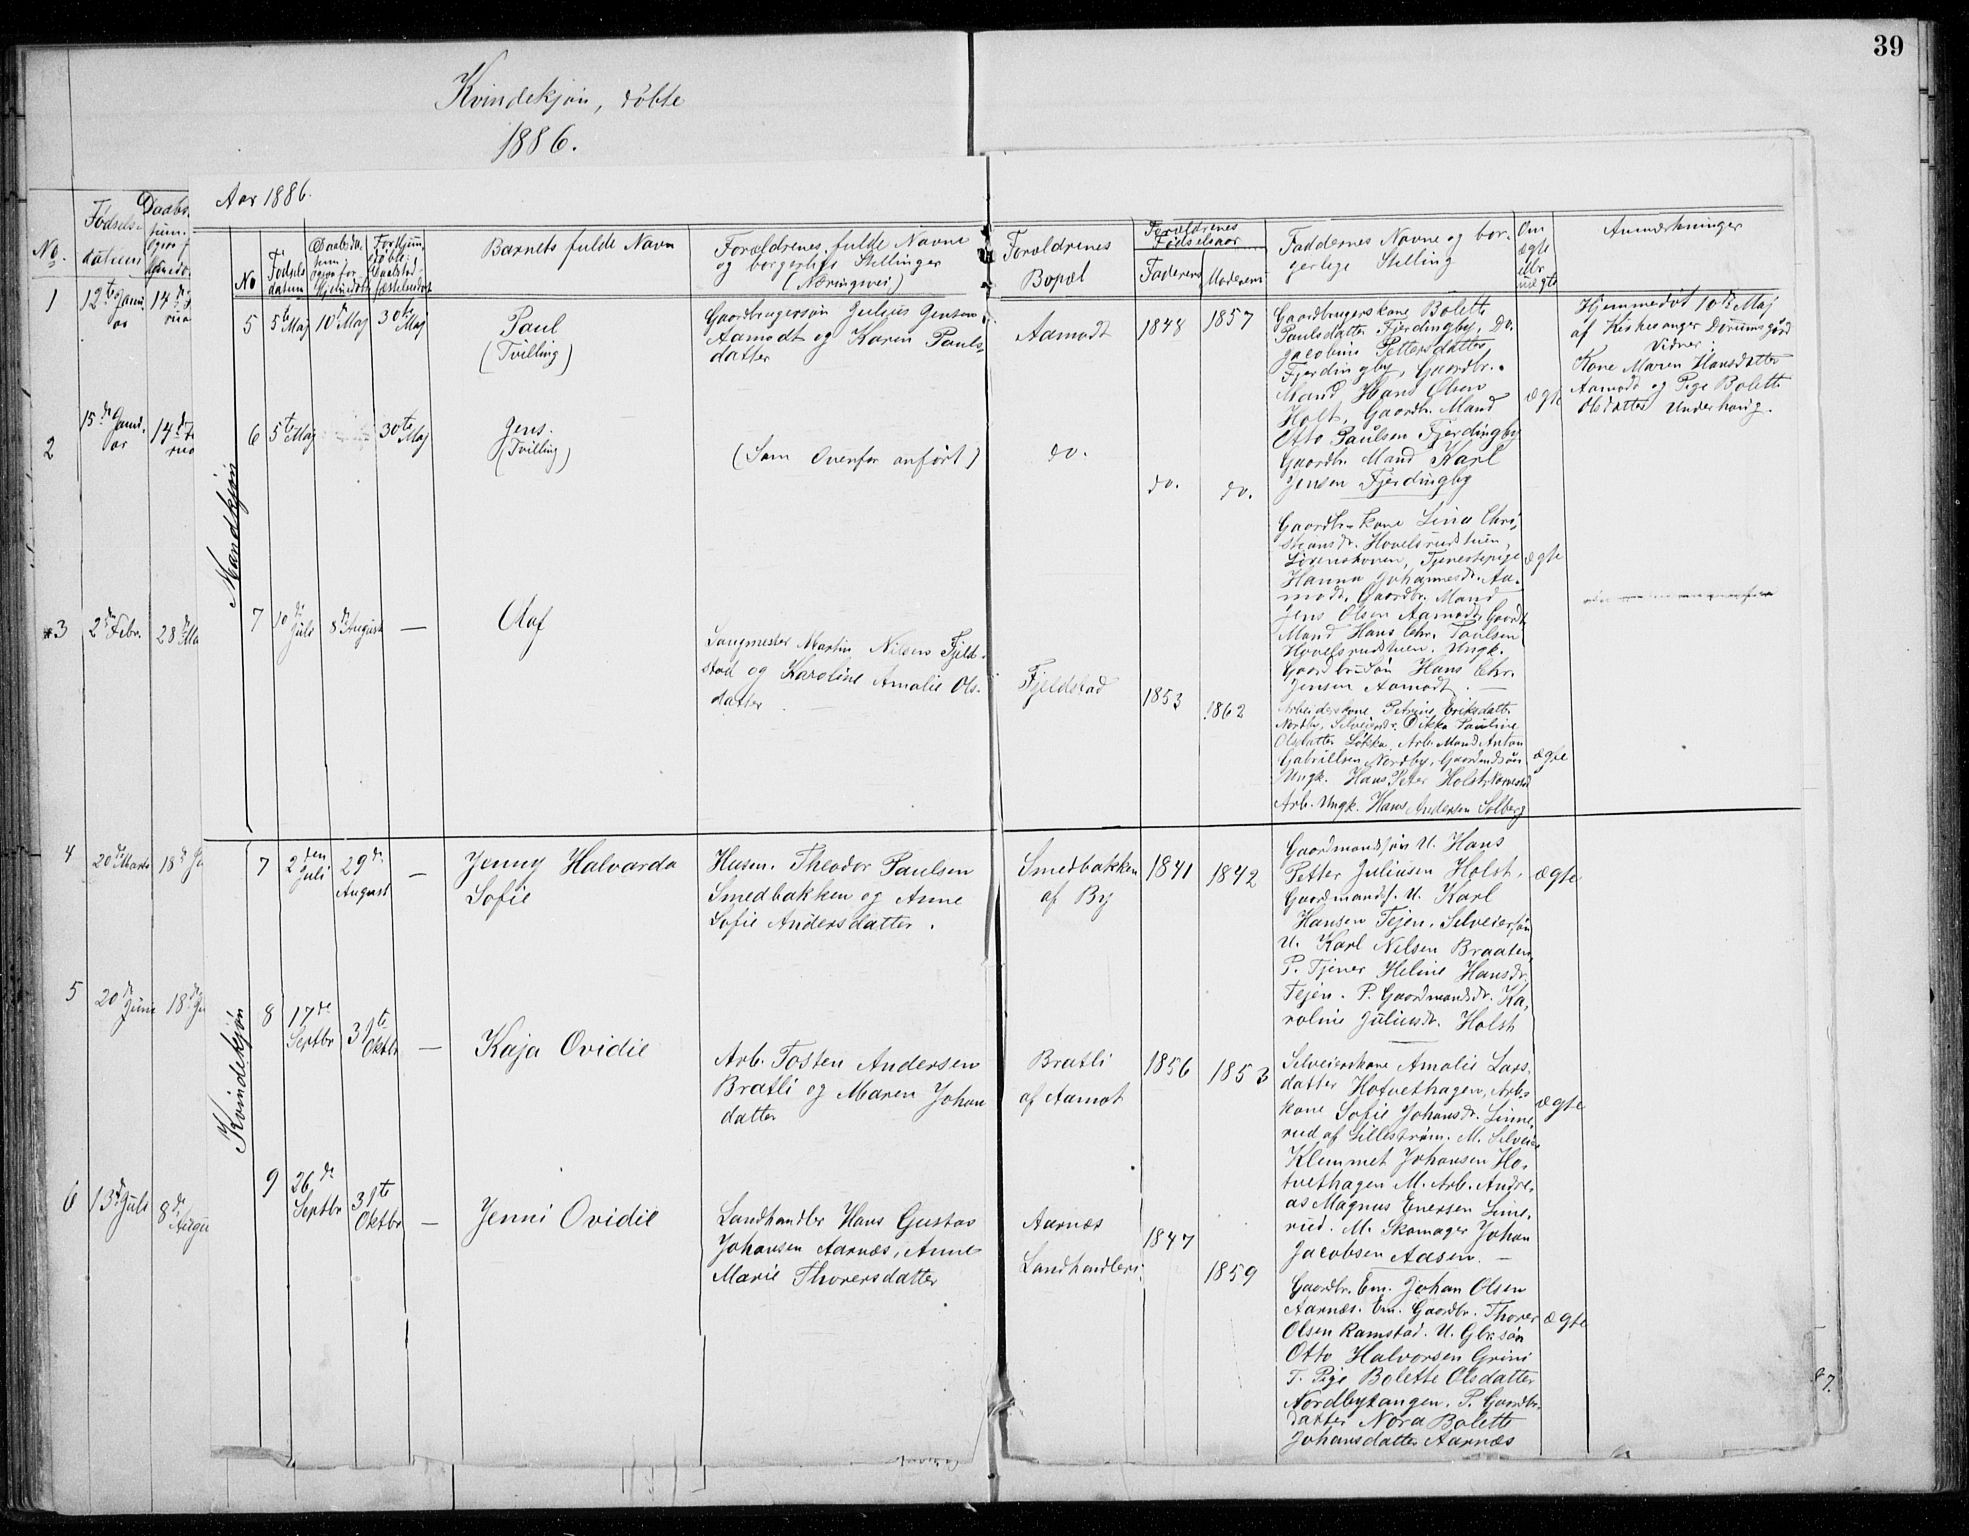 39
Kvindekjøn, døbte
1886.
No.
Fødsels
datum
Daabs
1
12te Janu
ar
14de
2
15de Janu
ar
14de
3
2de Febr.
28de
4
20de Marts
18de
5
20de Juni
18de
6
13de Juli
8de
Augu
Aar 1886.
No
Fødsels
datum
Barnets fulde Navn
Forældrenes fulde Navne
og borgerlige Stillinger
(Næringsvei)
Forældrenes
Bopæl
Forældrenes
Fødselsaar
Faderens
Moderens
Faddernes Navne og bor-
gerlige Stilling
Om
ægte
eller
uægte
Anmærkninger
Mandkjøn
5
5te Maj
10de Maj
30te
Maj
Paul
(Tvilling)
Gaardbrugersøn Julius Jensen
Aamodt og Karen Pauls-
datter
Aamodt
1848
1857
Gaardbrugerskone Bolette
Paulsdatter Fjerdingby, Do.
Jacobine Pettersdatter
Fjerdingby, Gaardbr.
Mand Hans Olsen
Holt, Gaardbr. Mand
Otto Paulsen Fjerdingby
Gaardbr. Mand Karl
Jensen Fjerdingby
ægte
Hjemmedøt 10de Maj
af Kirkesanger Dørumsgård
Vidner:
Kone Maren Hansdatter
Aamodt og Pige Bolette
Olsdatter Underhaug.
6
5te Maj
30te
Maj
Jens.
(Tvilling)
(Som Ovenfor anført)
do.
do.
do.
Gaardbr. kone Lina Chri-
stiansdr. Hovelsrudstuen,
Lørenskoven, Tjenestepige
Hanna Johannesdr. Aa-
modt, Gaardbr. Mand
Jens Olsen Aamodt, Gaardb.
Mand Hans Chr. Paulsen
Hovelsrudstuen. Ungk.
Gaardbr. Søn Hans Chr.
Jensen Aamodt. —
ægte
7
10de
Juli
8de August
—
Olaf
Saugmester Martin Nilsen Fjeld-
stad og Karoline Amalie Ols-
datter
Fjeldstad
1853
1862
Arbeiderskone Petrine Eriksdatter
Nordby, Selveierdr. Dikka Pauline
Olsdatter Løkka, Arb. Mand Anton
Gabrielsen Nordby, Gaardmdsøn
Ungk. Hans Peter Holst
Arb. Ungk. Hans Andersen Solberg
ægte
Kvindekjøn
7
2den
Juli
29de
August
—
Jenny Halvarda
Sofie
Husm. Theodor Paulsen
Smedbakken og Anne
Sofie Andersdatter.
Smedbakken
af By
1841
1842
Gaardmandssøn U. Hans
Petter Juliusen Holst,
Gaardmands. U. Karl
Hansen Tejen, Selveiersøn
U. Karl Nilsen Braaten,
P. Tjener Heline Hansdr.
Tejen. P. Gaardmandsdr. Ka-
roline Juliusdr. Holst
ægte
8
17de
Septbr
31te
Oktbr
—
Kaja Ovidie
Arb. Tosten Andersen
Bratli og Maren Johan
datter
Bratli
af Aamot
1856
1853
Selveierskone Amalie Lars-
datter Hotvethagen, Arb.s
kone Sofie Johansdr. Linne-
rud af Lillestrøm. M. Selveier
Klemmet Johansen Ho-
tvethagen M. Arb. Andre-
as Magnus Enersen Linne-
rud. M. Skomager Johan
Jacobsen Aasen. —
ægte
9
26de
Septbr
31te
Oktbr
—
Jenni Ovidie
Landhandler Hans Gustav
Johansen Aarnæs, Anne
Marie Thorersdatter
Aarnæs
Landhandleri.
1847
1859
Gaardbr. Em. Johan Olsen
Aarnæs. Em. Gaardbr. Thorer
Olsen Ramstad. U. Gbr.søn
Otto Halvorsen Grini
T. Pige Bolette Olsdatter
Nordbytangen. P. Gaardbr.
datter Nora Bolette
Johansdatter Aarnæs
ægte
87.